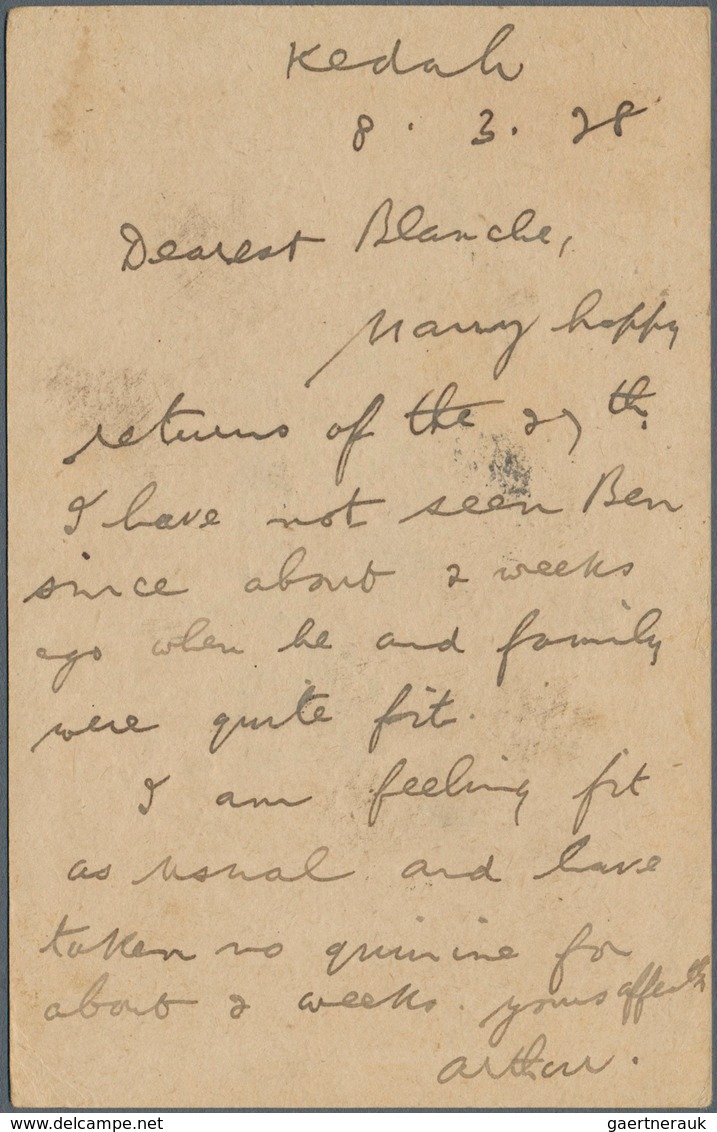 Kedah
8 . 3 . 28
Dearest Blanche,
Many happy
returns of the 27th.
I have not seen Ben
since about 2 weeks
ago when he and family
were quite fit.
I am feeling fit
as usual and have
taken no quinine for
about 2 weeks. yours
Arthur.
gaertnerauk